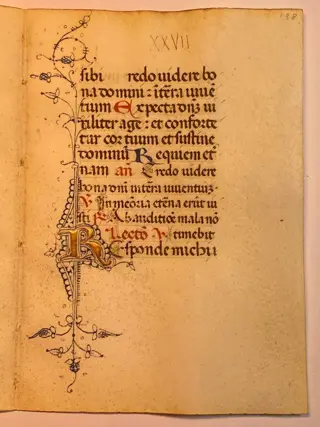 XXVII
198
sibi redo videre bo
na domini : i terra viue
tium Expecta dnz vi
riliter age : et conforte
tur cor tuum et sustine
dominu Requiem et
nam an Credo videre
bona dni in terra viuentiuz
V In meoria eterna erut iu
sti R Ab auditioe mala no
Lectio V timebit
Responde michi